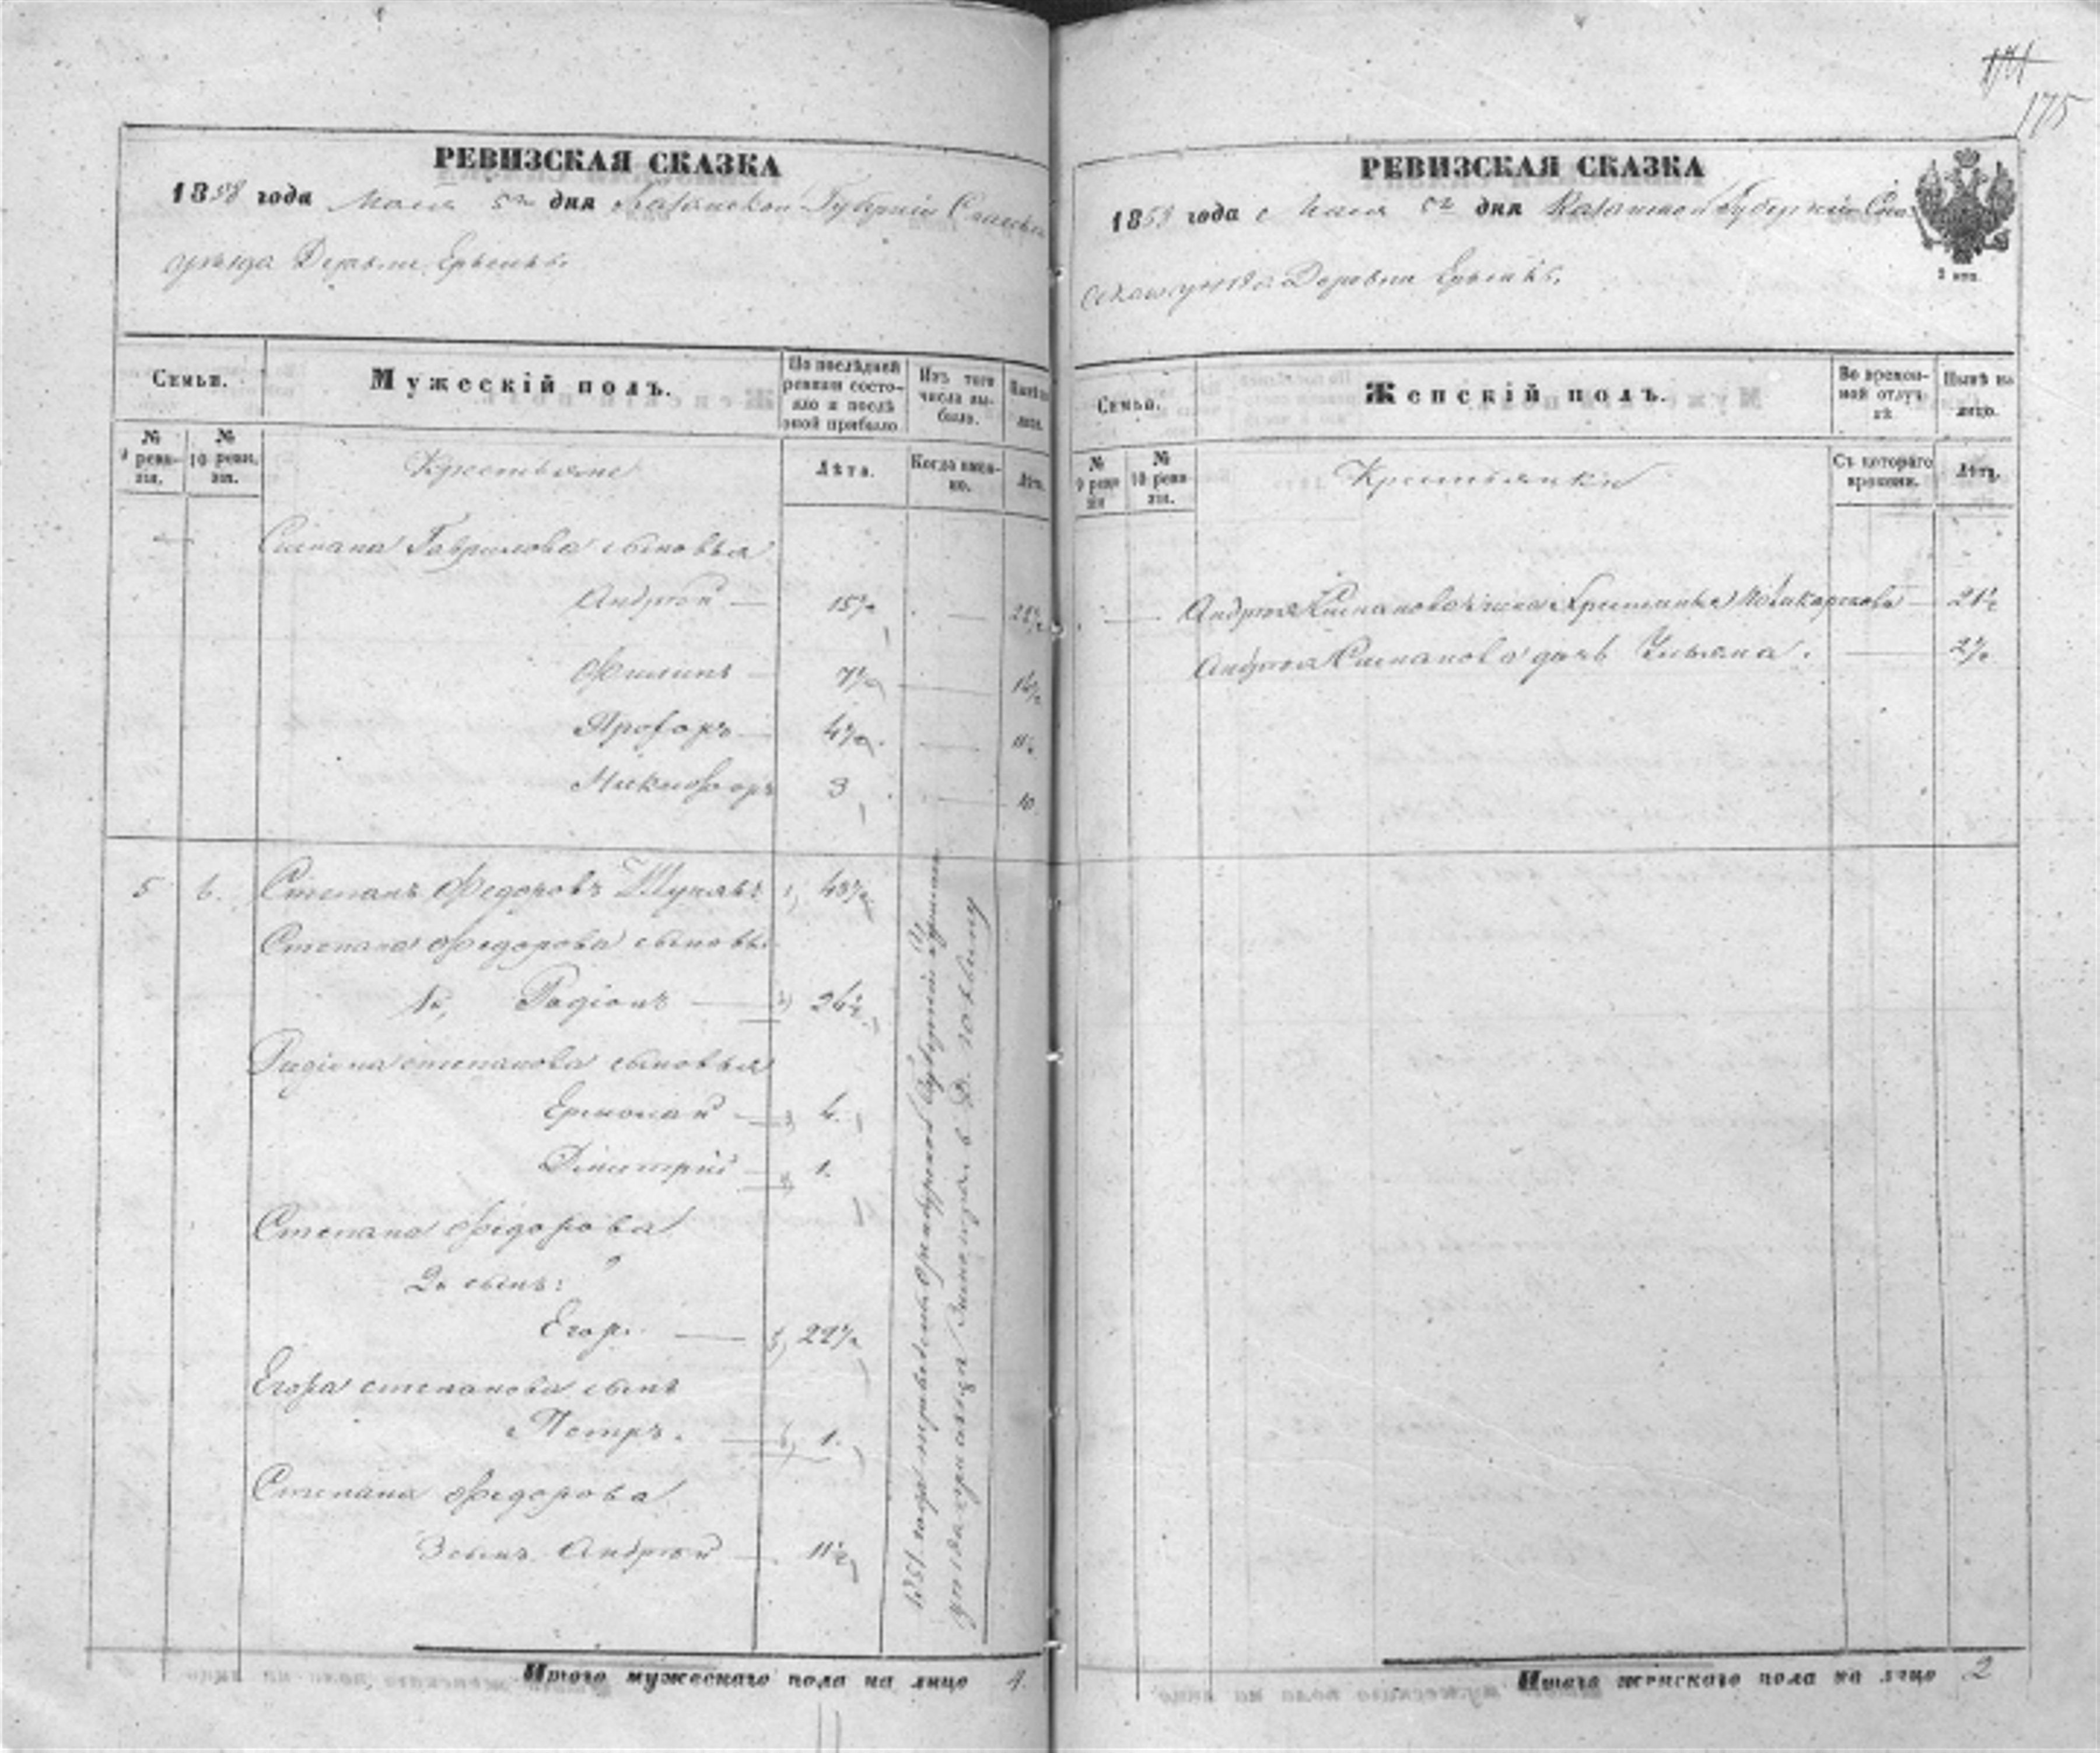 РЕВИЗСКАЯ СКАЗКА
1858 года Маія 5го дня Казанской Губерніи Спасска
уезда Деревни
Семьи.
Мужескій полъ.
По послѣдней ревизіи состояло и послѣ оной прибыло
Изъ того числа выбыло.
Нынѣ на лицо.
№ 9 ревизіи.
№ 10 ревизіи.
Крестьяне
Лѣта.
Когда именно.
Лѣта.
Степана Гаврилова сыновья
Андрей — 15½ —
Филипъ — 7½ —
Прохоръ — 4½ — 11½
Никифоръ 3 — 10.
5 6. Степанъ Федоровъ 1) 43½
Степана Федорова сыновья
1й, Радіонъ — 2) 26½
Радіона Степанова сыновья
Ермолай — 3) 4.
Дмитрій — 1.
Степана Федорова
2й сынъ:
Егоръ — 22½
Егора Степанова сынъ
Петръ. — 1.
Степана Федорова
3 сынъ Андрей — 11½
1851 года Оренбургской Губерніи
уезда в Д.
Итого мужескаго пола на лицо 4.
171
175
РЕВИЗСКАЯ СКАЗКА
1858 года Маія 5го дня Казанской Губерніи Спа
скаго уезда Деревни
Семьи.
Женскій полъ.
Во временной отлучкѣ
Нынѣ на лицо.
№ 9 ревизіи
№ 10 ревизіи.
Крестьянки
Съ котораго времени.
Лѣта.
— Андрея Степанова жена Поликарпова — 21½
Андрея Степанова дочь Ульяна. — 2½
Итого женскаго пола на лицо 2